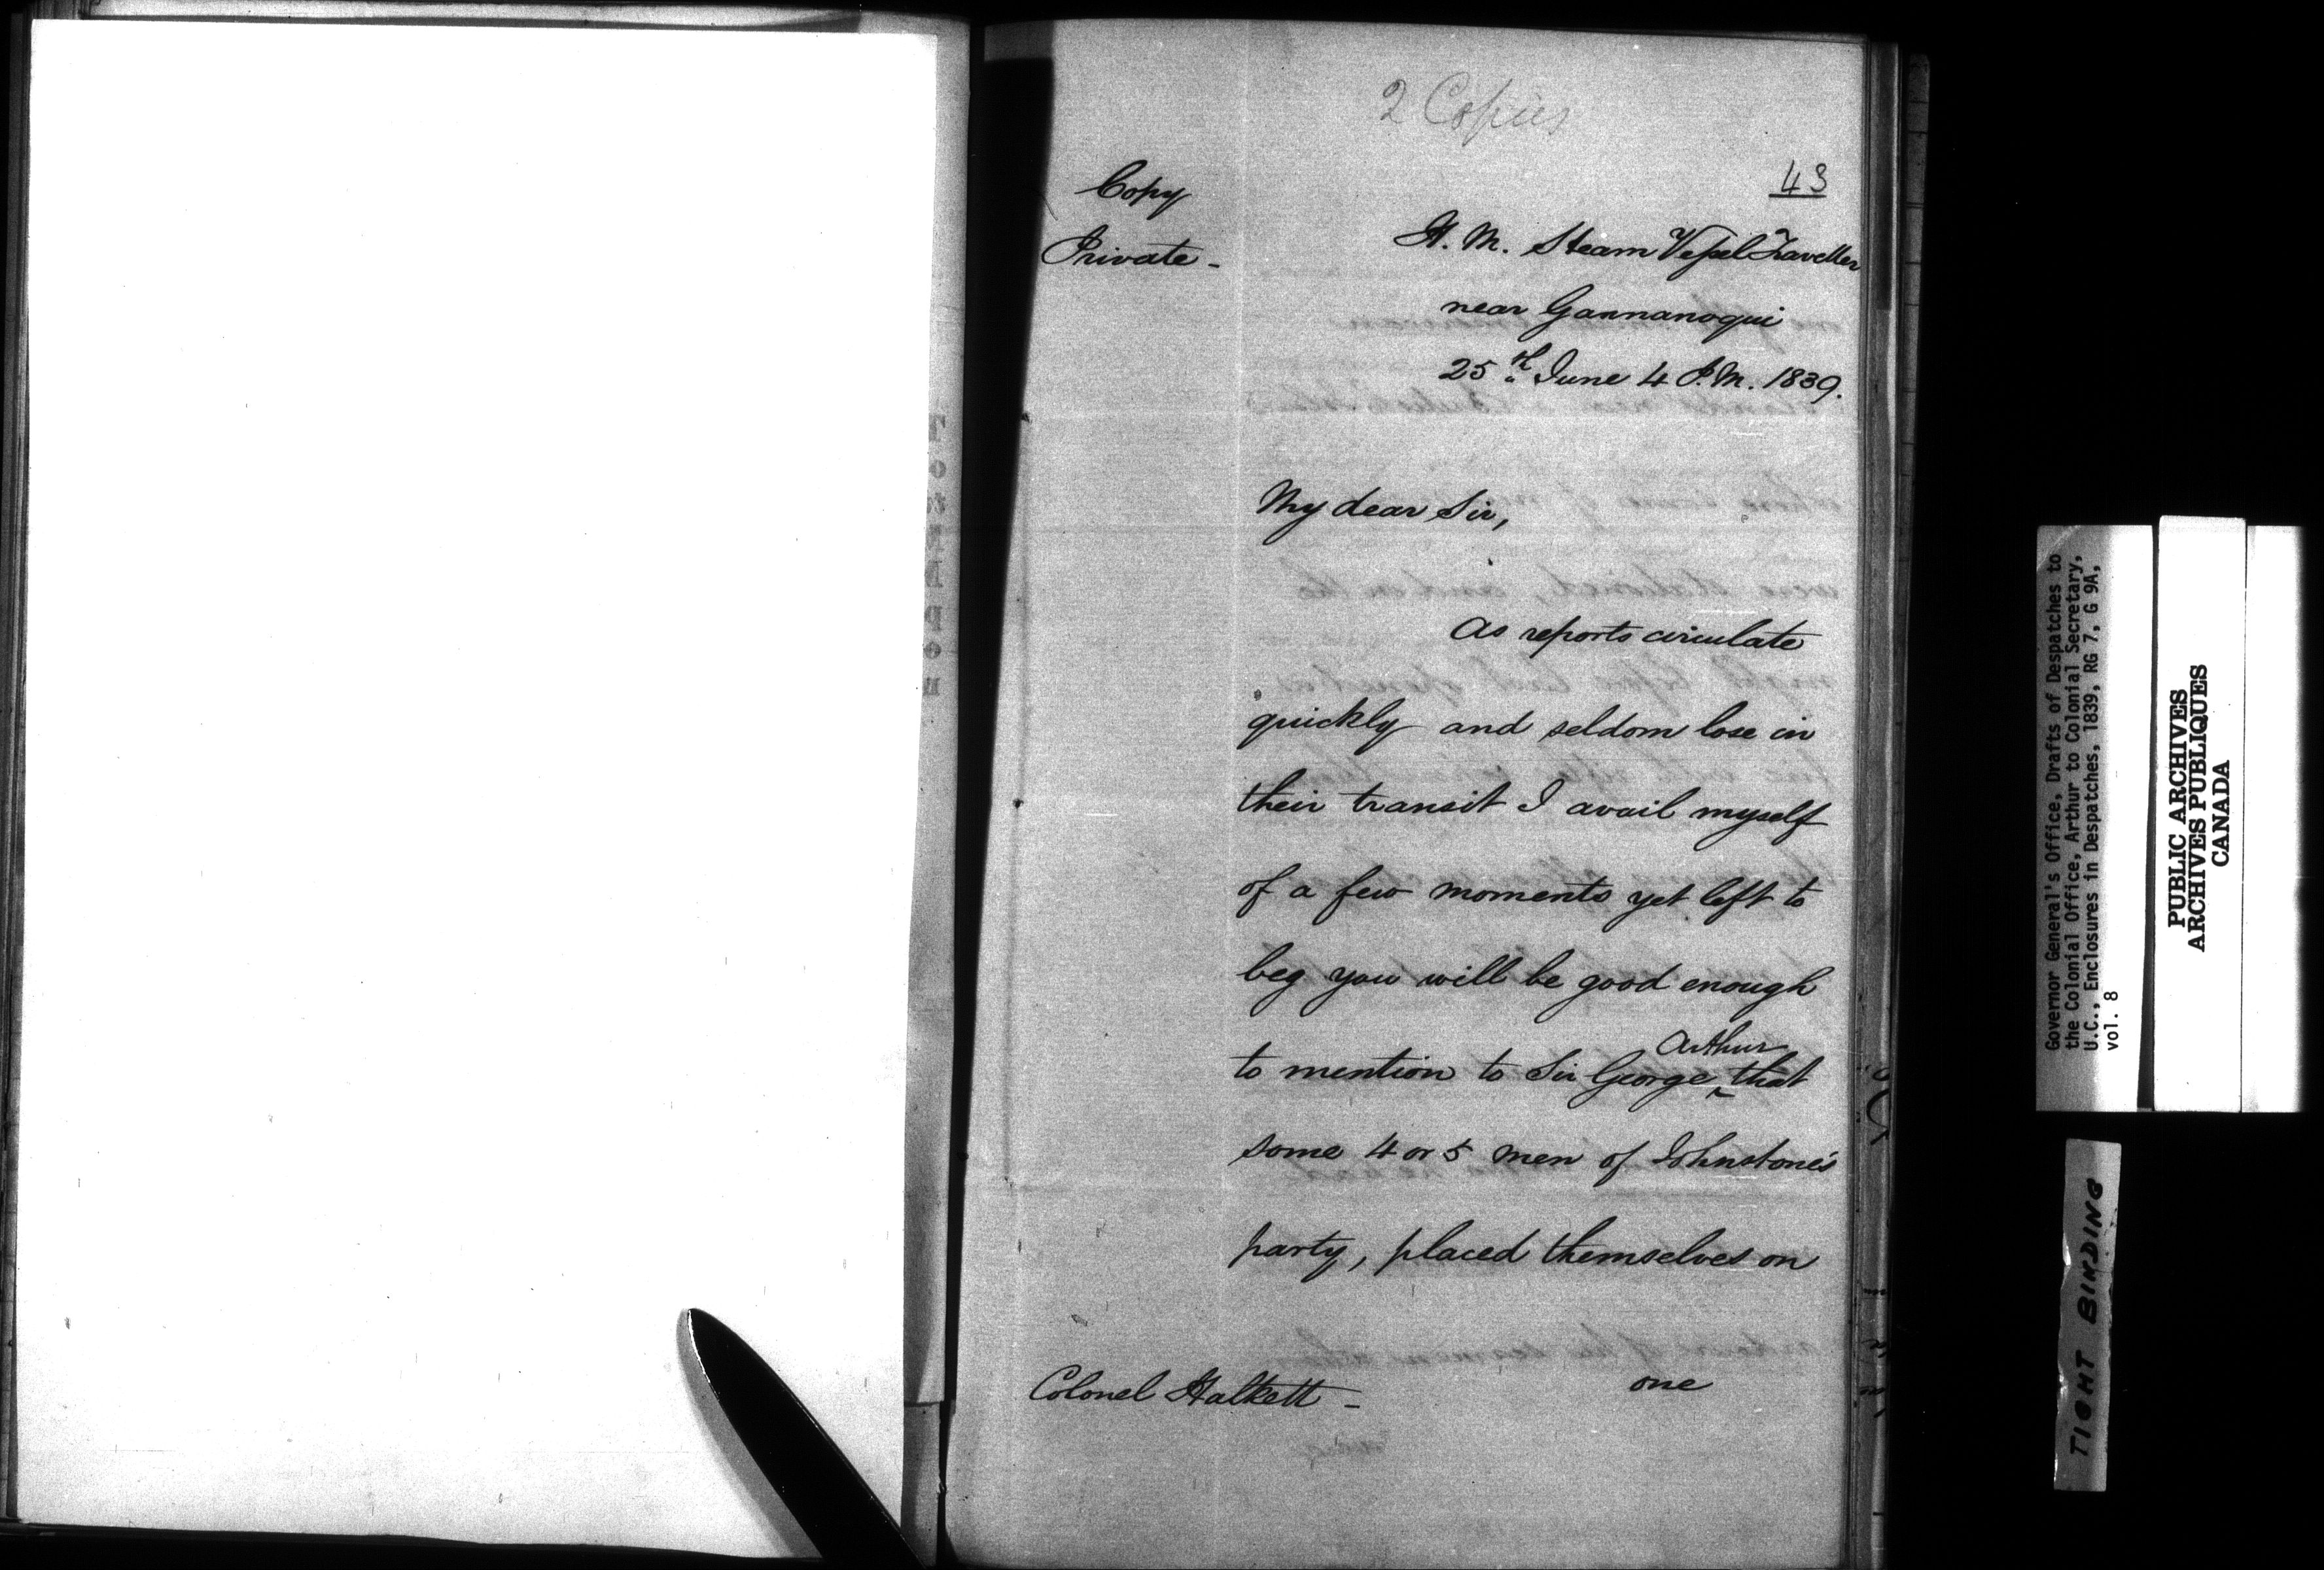 2 Copies
43
Copy
Private -
H. M. Steam Vessel Traveller
near Gannanoqui
25th June 4 P.M. 1839.
My dear Sir,
As reports circulate
quickly and seldom lose in
their transit I avail myself
of a few moments yet left to
beg you will be good enough
to mention to Sir George Arthur that
some 4 or 5 men of Johnstone's
party, placed themselves on
one
Colonel Halkett -
Governor General's Office, Drafts of Despatches to
the Colonial Office, Arthur to Colonial Secretary,
U.C., Enclosures in Despatches, 1839, RG 7, G 9A,
vol. 8
PUBLIC ARCHIVES
ARCHIVES PUBLIQUES
CANADA
TIGHT BINDING